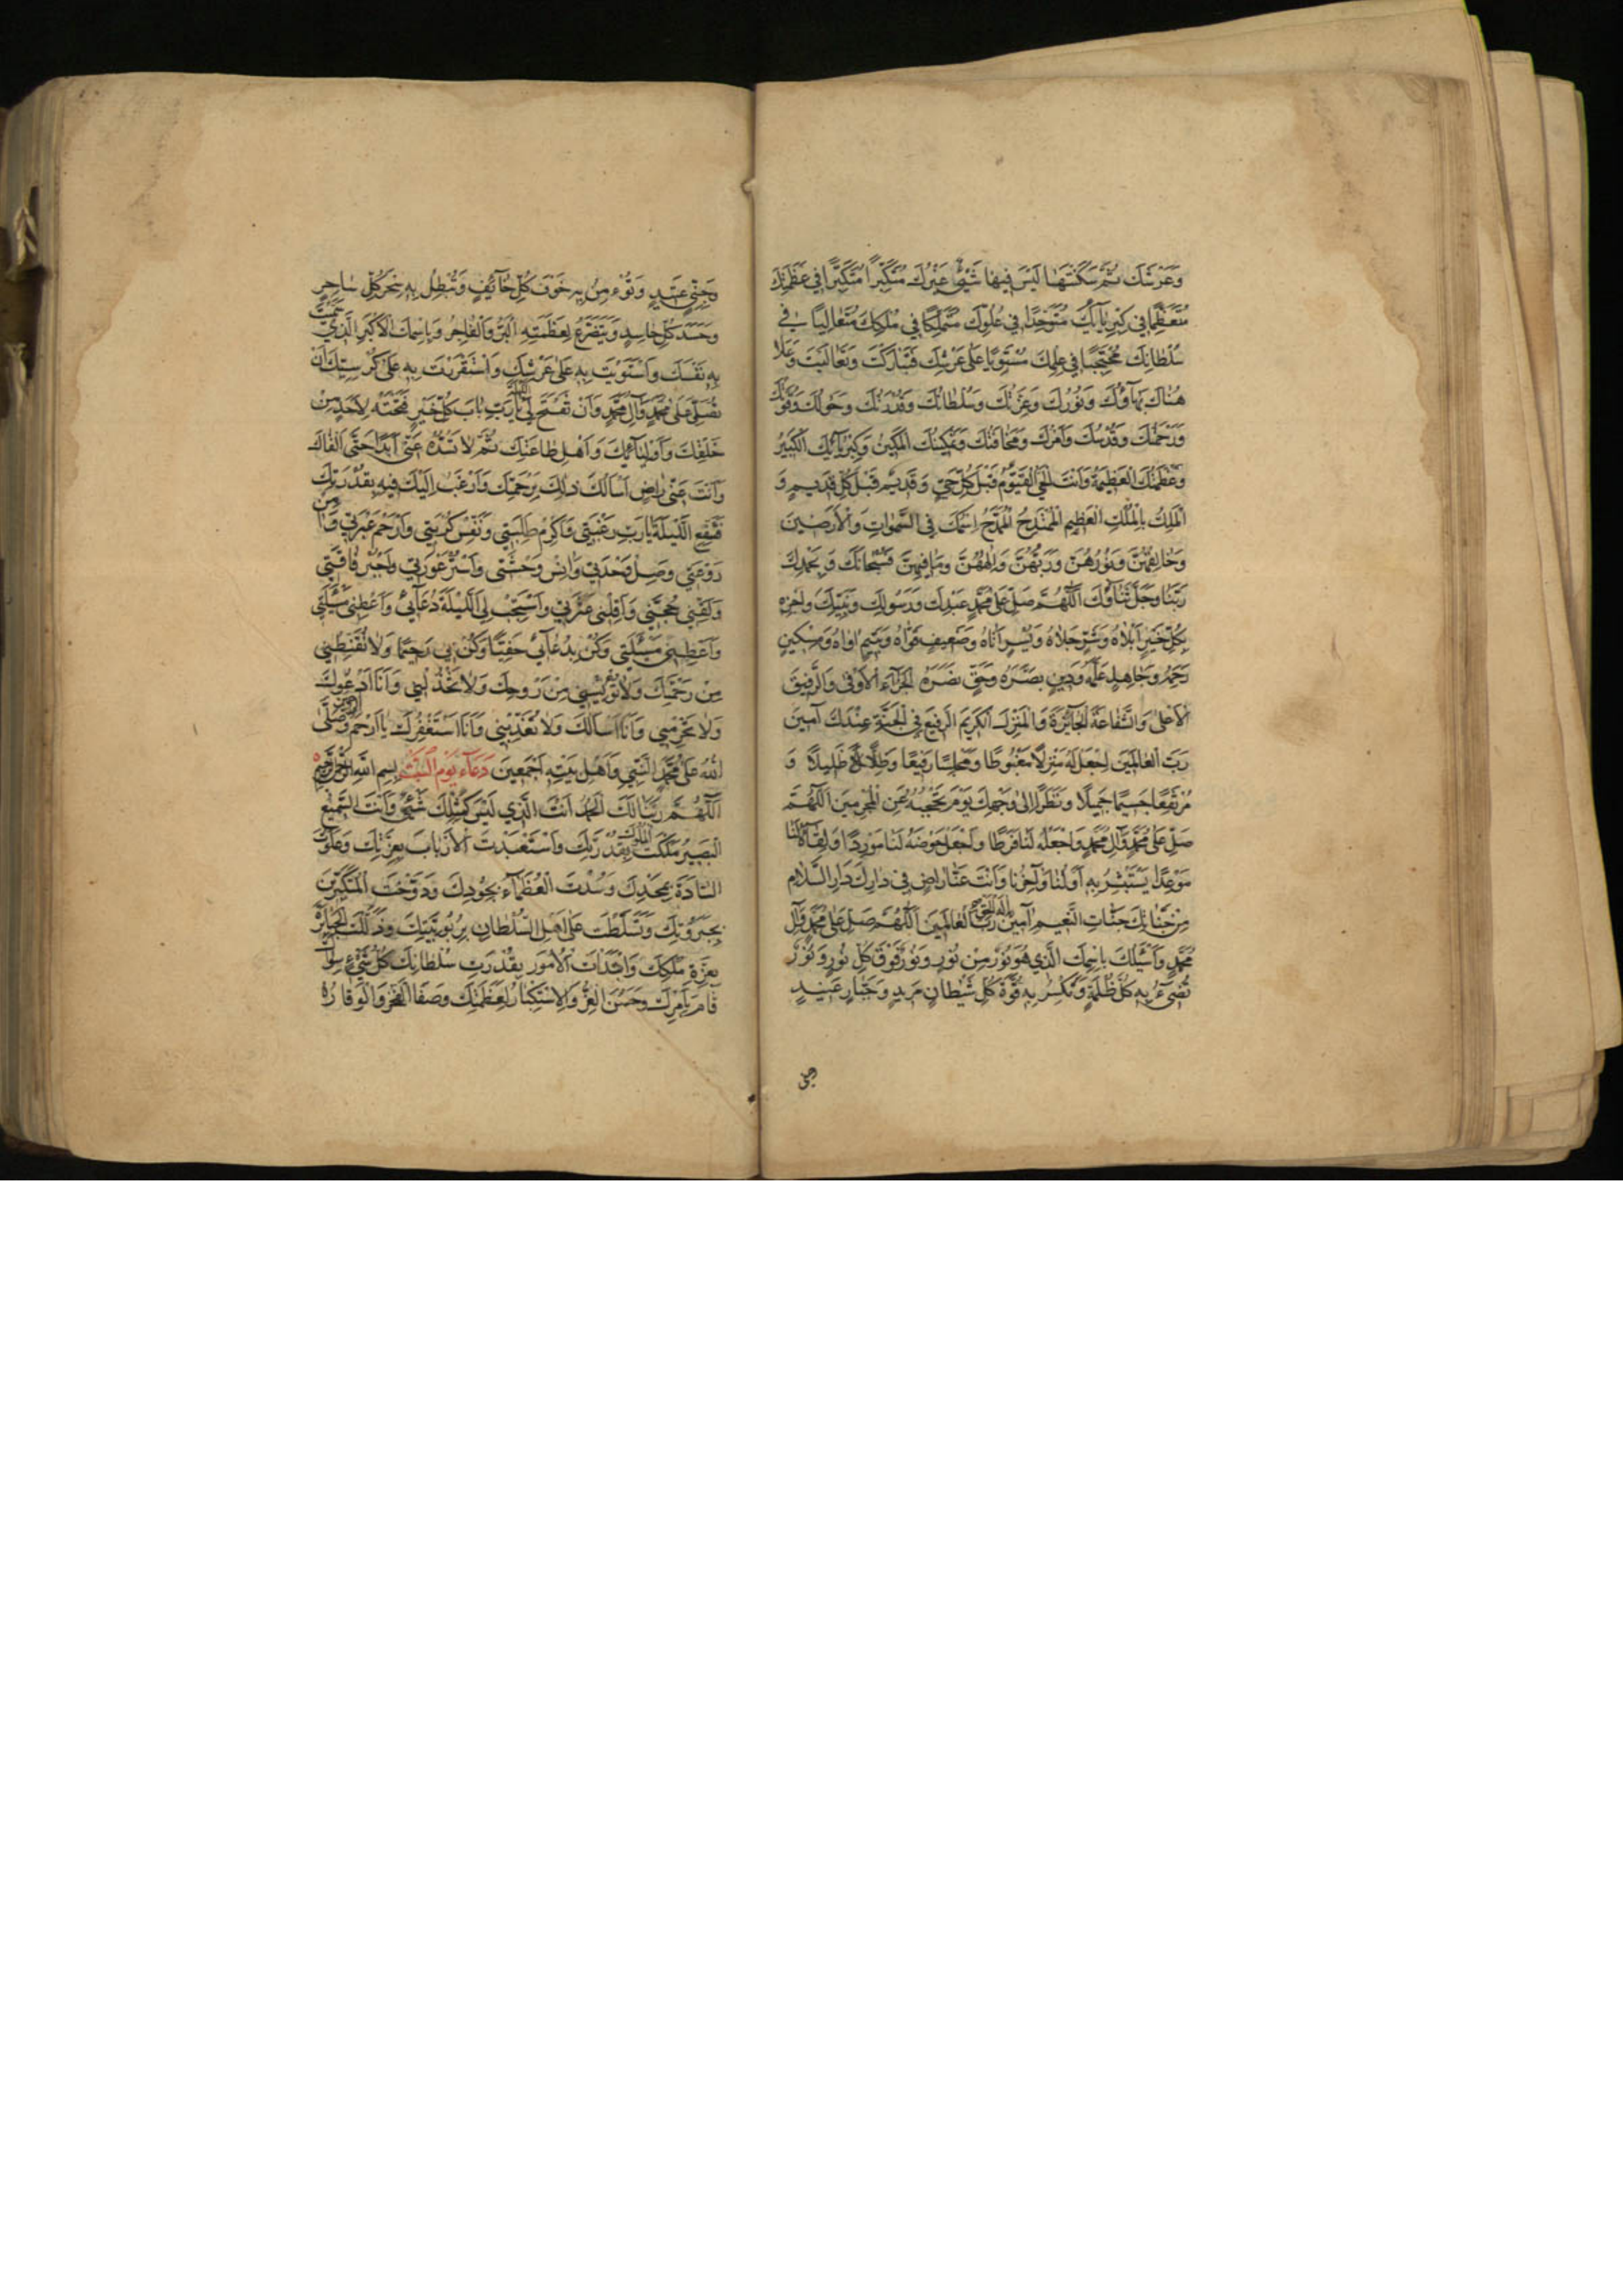 وَعَرْشَكَ ثُمَّ سَكَنْتَهَا لَيْسَ فِيهَا شَيْءٌ غَيْرُكَ مُتَكَبِّرًا فِي عَظَمَتِكَ
مُتَعَظِّمًا فِي كِبْرِيَآئِكَ مُتَوَحِّدًا فِي عُلُوِّكَ مُتَمَلِّكًا فِي مُلْكِكَ مُتَعَالِيًا فِي
سُلْطَانِكَ مُحْتَجِبًا فِي عِلْمِكَ مُسْتَوِيًا عَلَى عَرْشِكَ فَتَبَارَكْتَ وَتَعَالَيْتَ وَعَلَا
هُنَاكَ بَهَآؤُكَ وَنُورُكَ وَعِزَّتُكَ وَسُلْطَانُكَ وَقُدْرَتُكَ وَحَوْلُكَ وَقُوَّتُكَ
وَرَحْمَتُكَ وَقُدْسُكَ وَأَمْرُكَ وَمَخَافَتُكَ وَتَمْكِينُكَ الْمَكِينُ وَكِبْرِيَآئُكَ الْكَبِيرُ
وَعَظَمَتُكَ الْعَظِيمَةُ وَأَنْتَ الْحَيُّ الْقَيُّومُ قَبْلَ كُلِّ حَيٍّ وَقَدِيمٌ قَبْلَ كُلِّ قَدِيمٍ وَ
الْمَلِكُ بِالْمُلْكِ الْعَظِيمِ الْمُمْتَدِحُ الْمُمَدَّحُ اسْمُكَ فِي السَّمٰوَاتِ وَالْأَرَضِينَ
وَخَالِقُهُنَّ وَنُورُهُنَّ وَرَبُّهُنَّ وَإِلٰهُهُنَّ وَمَا فِيهِنَّ فَسُبْحَانَكَ وَبِحَمْدِكَ
رَبَّنَا وَجَلَّ ثَنَآؤُكَ اللّٰهُمَّ صَلِّ عَلَى مُحَمَّدٍ عَبْدِكَ وَرَسُولِكَ وَنَبِيِّكَ وَاجْزِهِ
بِكُلِّ خَيْرٍ أَبْلَاهُ وَشَرٍّ جَلَاهُ وَيُسْرٍ أَتَاهُ وَضَعِيفٍ قَوَّاهُ وَيَتِيمٍ آوَاهُ وَمِسْكِينٍ
رَحِمَهُ وَجَاهِلٍ عَلَّمَهُ وَدِينٍ بَصَّرَهُ وَحَقٍّ نَصَرَهُ الْجَزَآءَ الْأَوْفَى وَالرَّفِيقَ
الْأَعْلَى وَالشَّفَاعَةَ الْجَائِزَةَ وَالْمَنْزِلَ الْكَرِيمَ الرَّفِيعَ فِي الْجَنَّةِ عِنْدَكَ آمِينَ
رَبَّ الْعَالَمِينَ اجْعَلْ لَهُ مَنْزِلًا مَغْبُوطًا وَمَجْلِسًا رَفِيعًا وَظِلًّا ظَلِيلًا وَ
مُرْتَفَعًا جَسِيمًا جَمِيلًا وَنَظَرًا إِلَى وَجْهِكَ يَوْمَ تَحْجُبُهُ عَنِ الْمُجْرِمِينَ اللّٰهُمَّ
صَلِّ عَلَى مُحَمَّدٍ وَآلِ مُحَمَّدٍ وَاجْعَلْهُ لَنَا فَرَطًا وَاجْعَلْ حَوْضَهُ لَنَا مَوْرِدًا وَلِقَآءَهُ لَنَا
مَوْعِدًا يَسْتَبْشِرُ بِهِ أَوَّلُنَا وَآخِرُنَا وَأَنْتَ عَنَّا رَاضٍ فِي دَارِكَ دَارِ السَّلَامِ
مِنْ جَنَّاتِكَ جَنَّاتِ النَّعِيمِ آمِينَ إِلٰهَ الْحَقِّ رَبَّ الْعَالَمِينَ اللّٰهُمَّ صَلِّ عَلَى مُحَمَّدٍ وَآلِ
مُحَمَّدٍ وَأَسْئَلُكَ بِاسْمِكَ الَّذِي هُوَ نُورٌ مِنْ نُورٍ وَنُورٌ فَوْقَ كُلِّ نُورٍ وَنُورٌ
تُضِيءُ بِهِ كُلَّ ظُلْمَةٍ وَتَكْسِرُ بِهِ قُوَّةَ كُلِّ شَيْطَانٍ مَرِيدٍ وَجَبَّارٍ عَنِيدٍ
وَجِنِّيٍّ عَتِيدٍ وَتُؤْمِنُ بِهِ خَوْفَ كُلِّ خَآئِفٍ وَتُبْطِلُ بِهِ سِحْرَ كُلِّ سَاحِرٍ
وَحَسَدَ كُلِّ حَاسِدٍ وَيَتَضَرَّعُ لِعَظَمَتِهِ الْبَرُّ وَالْفَاجِرُ وَبِاسْمِكَ الْأَكْبَرِ الَّذِي سَمَّيْتَ
بِهِ نَفْسَكَ وَاسْتَوَيْتَ بِهِ عَلَى عَرْشِكَ وَاسْتَقْرَرْتَ بِهِ عَلَى كُرْسِيِّكَ أَنْ
تُصَلِّيَ عَلَى مُحَمَّدٍ وَآلِ مُحَمَّدٍ وَأَنْ تَفْتَحَ لِيَ اللَّيْلَةَ يَا رَبِّ بَابَ كُلِّ خَيْرٍ فَتَحْتَهُ لِأَحَدٍ مِنْ
خَلْقِكَ وَأَوْلِيَآئِكَ وَأَهْلِ طَاعَتِكَ ثُمَّ لَا تَسُدُّهُ عَنِّي أَبَدًا حَتَّى أَلْقَاكَ
وَأَنْتَ عَنِّي رَاضٍ أَسْأَلُكَ ذَلِكَ بِرَحْمَتِكَ وَأَرْغَبُ إِلَيْكَ فِيهِ بِقُدْرَتِكَ
فَشَفِّعِ اللَّيْلَةَ يَا رَبِّ رَغْبَتِي وَأَكْرِمْ طَلِبَتِي وَنَفِّسْ كُرْبَتِي وَارْحَمْ عَبْرَتِي وَآمِنْ
رَوْعَتِي وَصِلْ وَحْدَتِي وَآنِسْ وَحْشَتِي وَاسْتُرْ عَوْرَتِي وَاجْبُرْ فَاقَتِي
وَلَقِّنِّي حُجَّتِي وَأَقِلْنِي عَثْرَتِي وَاسْتَجِبْ لِيَ اللَّيْلَةَ دُعَآئِي وَأَعْطِنِي مَسْئَلَتِي
وَأَعْطِنِي مَسْئَلَتِي وَكُنْ بِدُعَآئِي حَفِيًّا وَكُنْ بِي رَحِيمًا وَلَا تُقَنِّطْنِي
مِنْ رَحْمَتِكَ وَلَا تُؤْيِسْنِي مِنْ رَوْحِكَ وَلَا تَخْذُلْنِي وَأَنَا أَدْعُوكَ
وَلَا تَحْرِمْنِي وَأَنَا أَسْأَلُكَ وَلَا تُعَذِّبْنِي وَأَنَا أَسْتَغْفِرُكَ يَا أَرْحَمَ الرَّاحِمِينَ وَصَلَّى
اللّٰهُ عَلَى مُحَمَّدٍ النَّبِيِّ وَأَهْلِ بَيْتِهِ أَجْمَعِينَ دُعَآءِ يَوْمِ السَّبْتِ بِسْمِ اللّٰهِ الرَّحْمٰنِ الرَّحِيمِ
اللّٰهُمَّ رَبَّنَا لَكَ الْحَمْدُ أَنْتَ الَّذِي لَيْسَ كَمِثْلِكَ شَيْءٌ وَأَنْتَ السَّمِيعُ
الْبَصِيرُ مَلَكْتَ الْمُلُوكَ بِقُدْرَتِكَ وَاسْتَعْبَدْتَ الْأَرْبَابَ بِعِزَّتِكَ وَعَلَوْتَ
السَّادَةَ بِمَجْدِكَ وَسُدْتَ الْعُظَمَآءَ بِجُودِكَ وَدَوَّخْتَ الْمُتَكَبِّرِينَ
بِجَبَرُوتِكَ وَتَسَلَّطْتَ عَلَى أَهْلِ السُّلْطَانِ بِرُبُوبِيَّتِكَ وَذَلَّلْتَ الْجَبَابِرَةَ
بِعِزَّةِ مُلْكِكَ وَابْتَدَأْتَ الْأُمُورَ بِقُدْرَتِ سُلْطَانِكَ كُلُّ شَيْءٍ سِوَاكَ
قَامَ بِأَمْرِكَ وَحَسُنَ الْعِزُّ وَالْاسْتِكْبَارُ لِعَظَمَتِكَ وَصَفَا الْفَخْرُ وَالْوَقَارُ